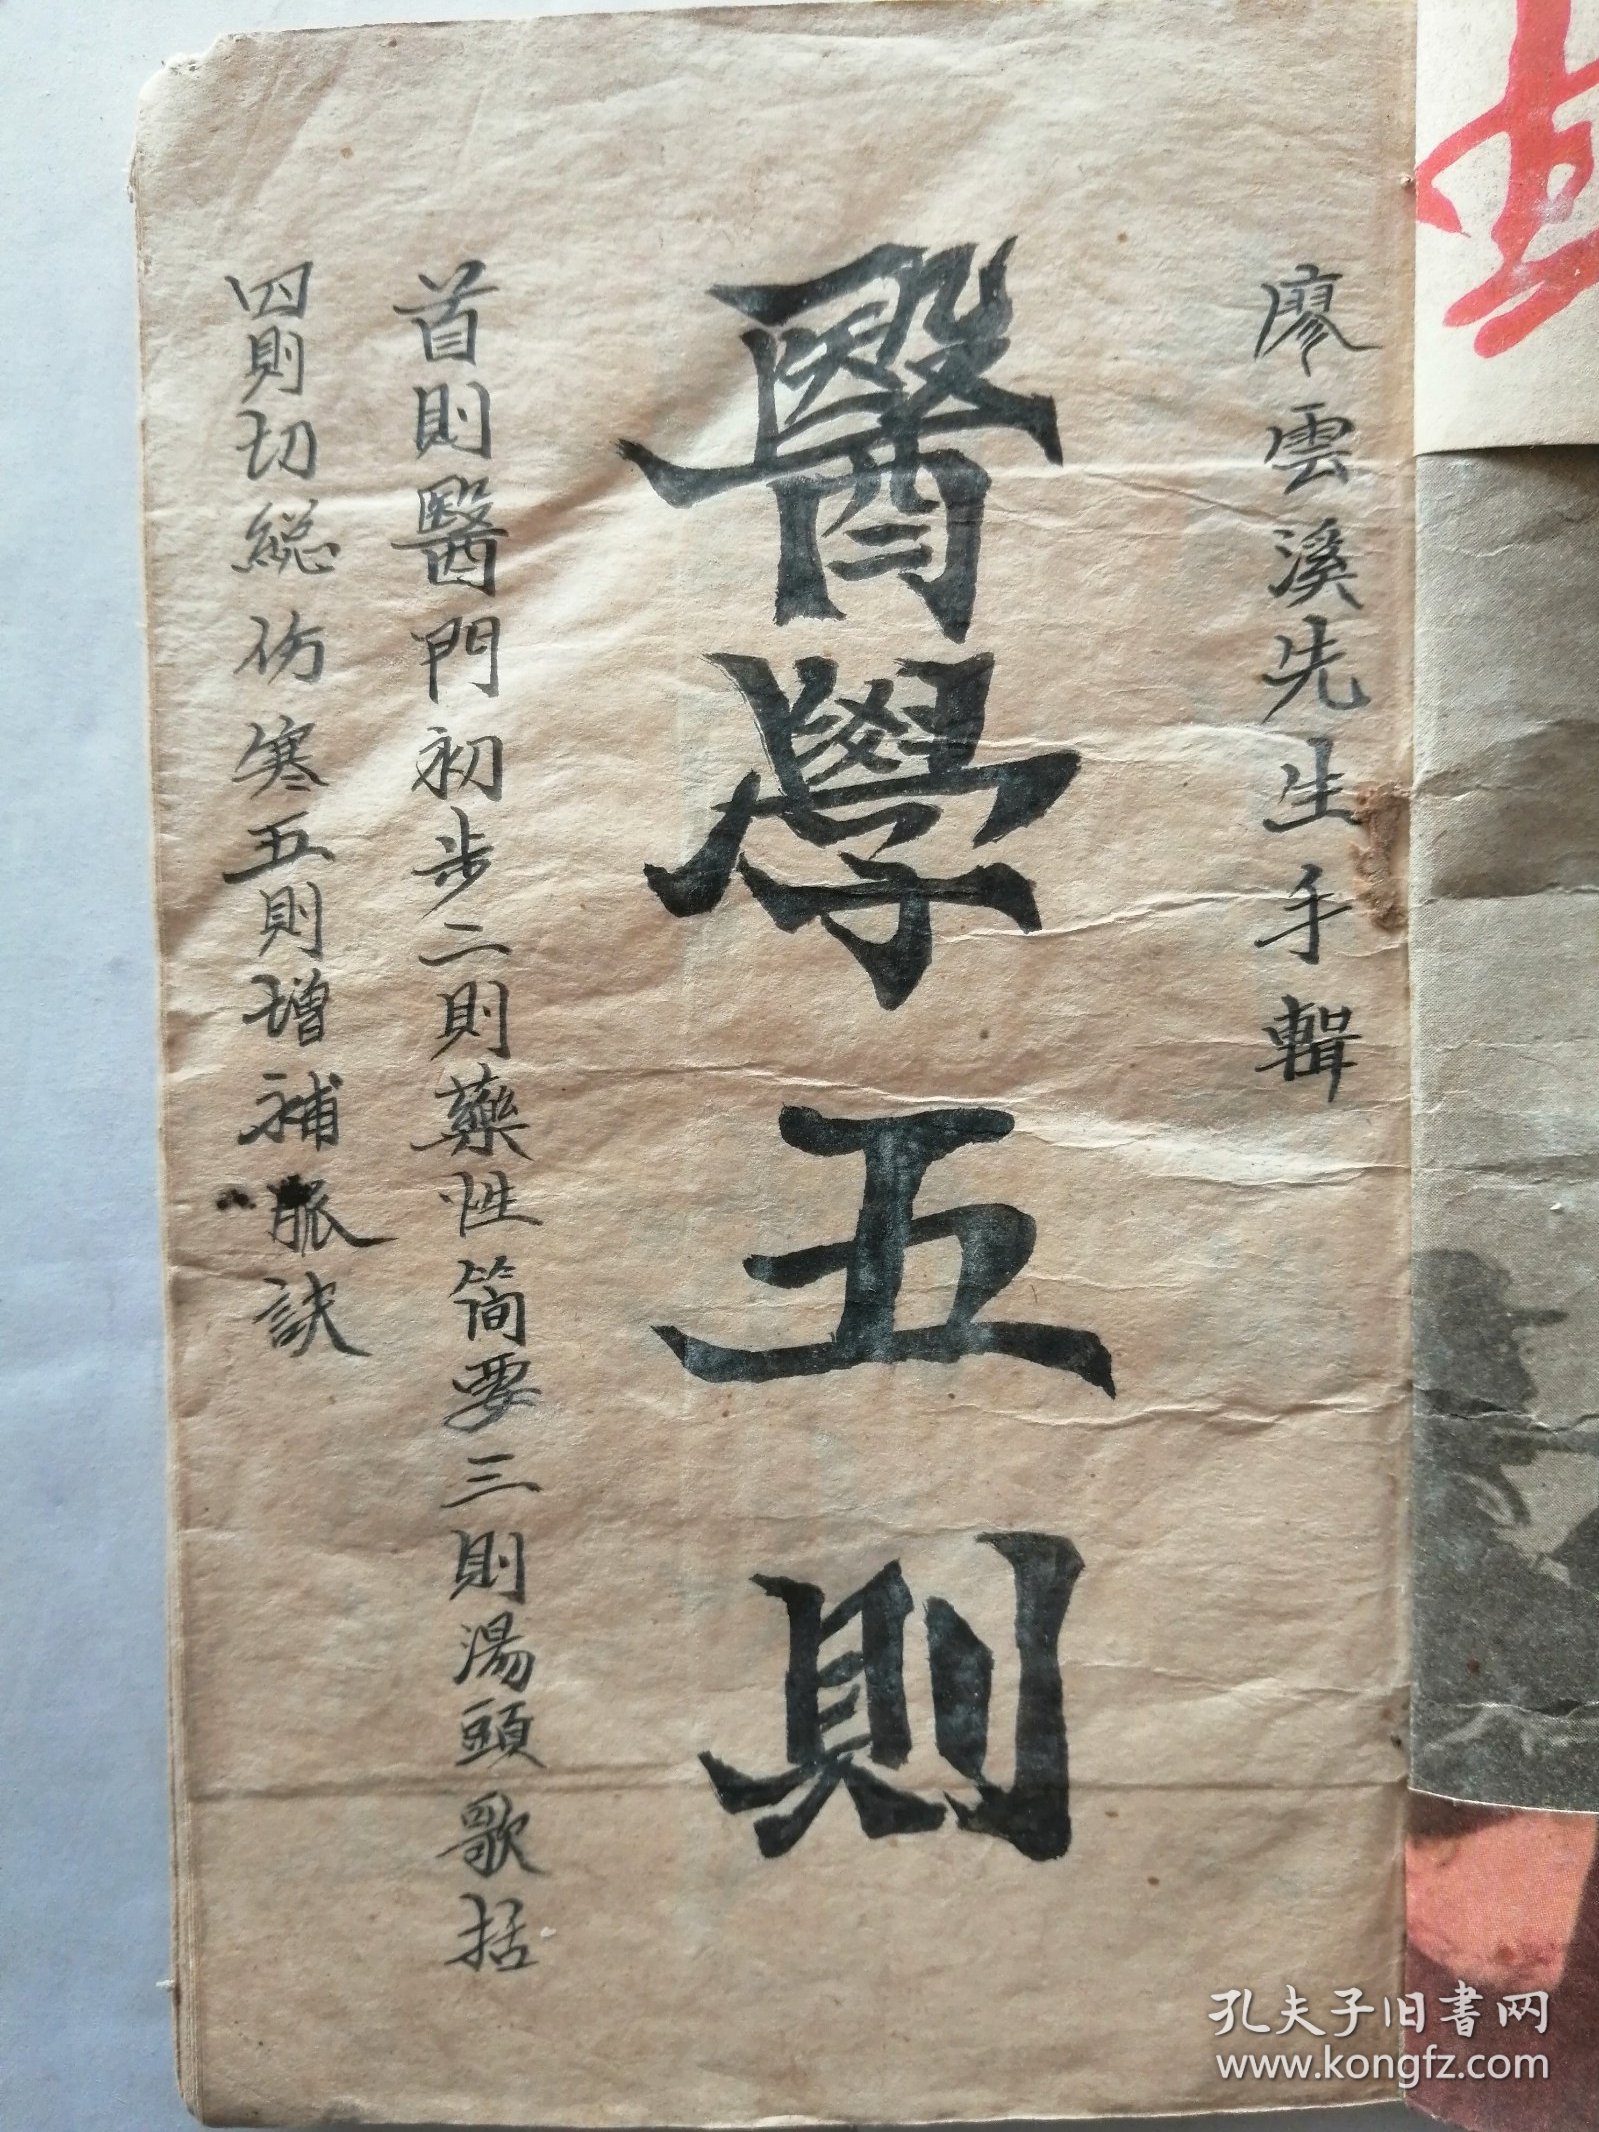 廖雲溪先生手輯
醫學五則
首則醫門初步二則藥性简要三則湯頭歌括
四則切総伤寒五則增補脈訣
孔夫子旧书网
www.kongfz.com